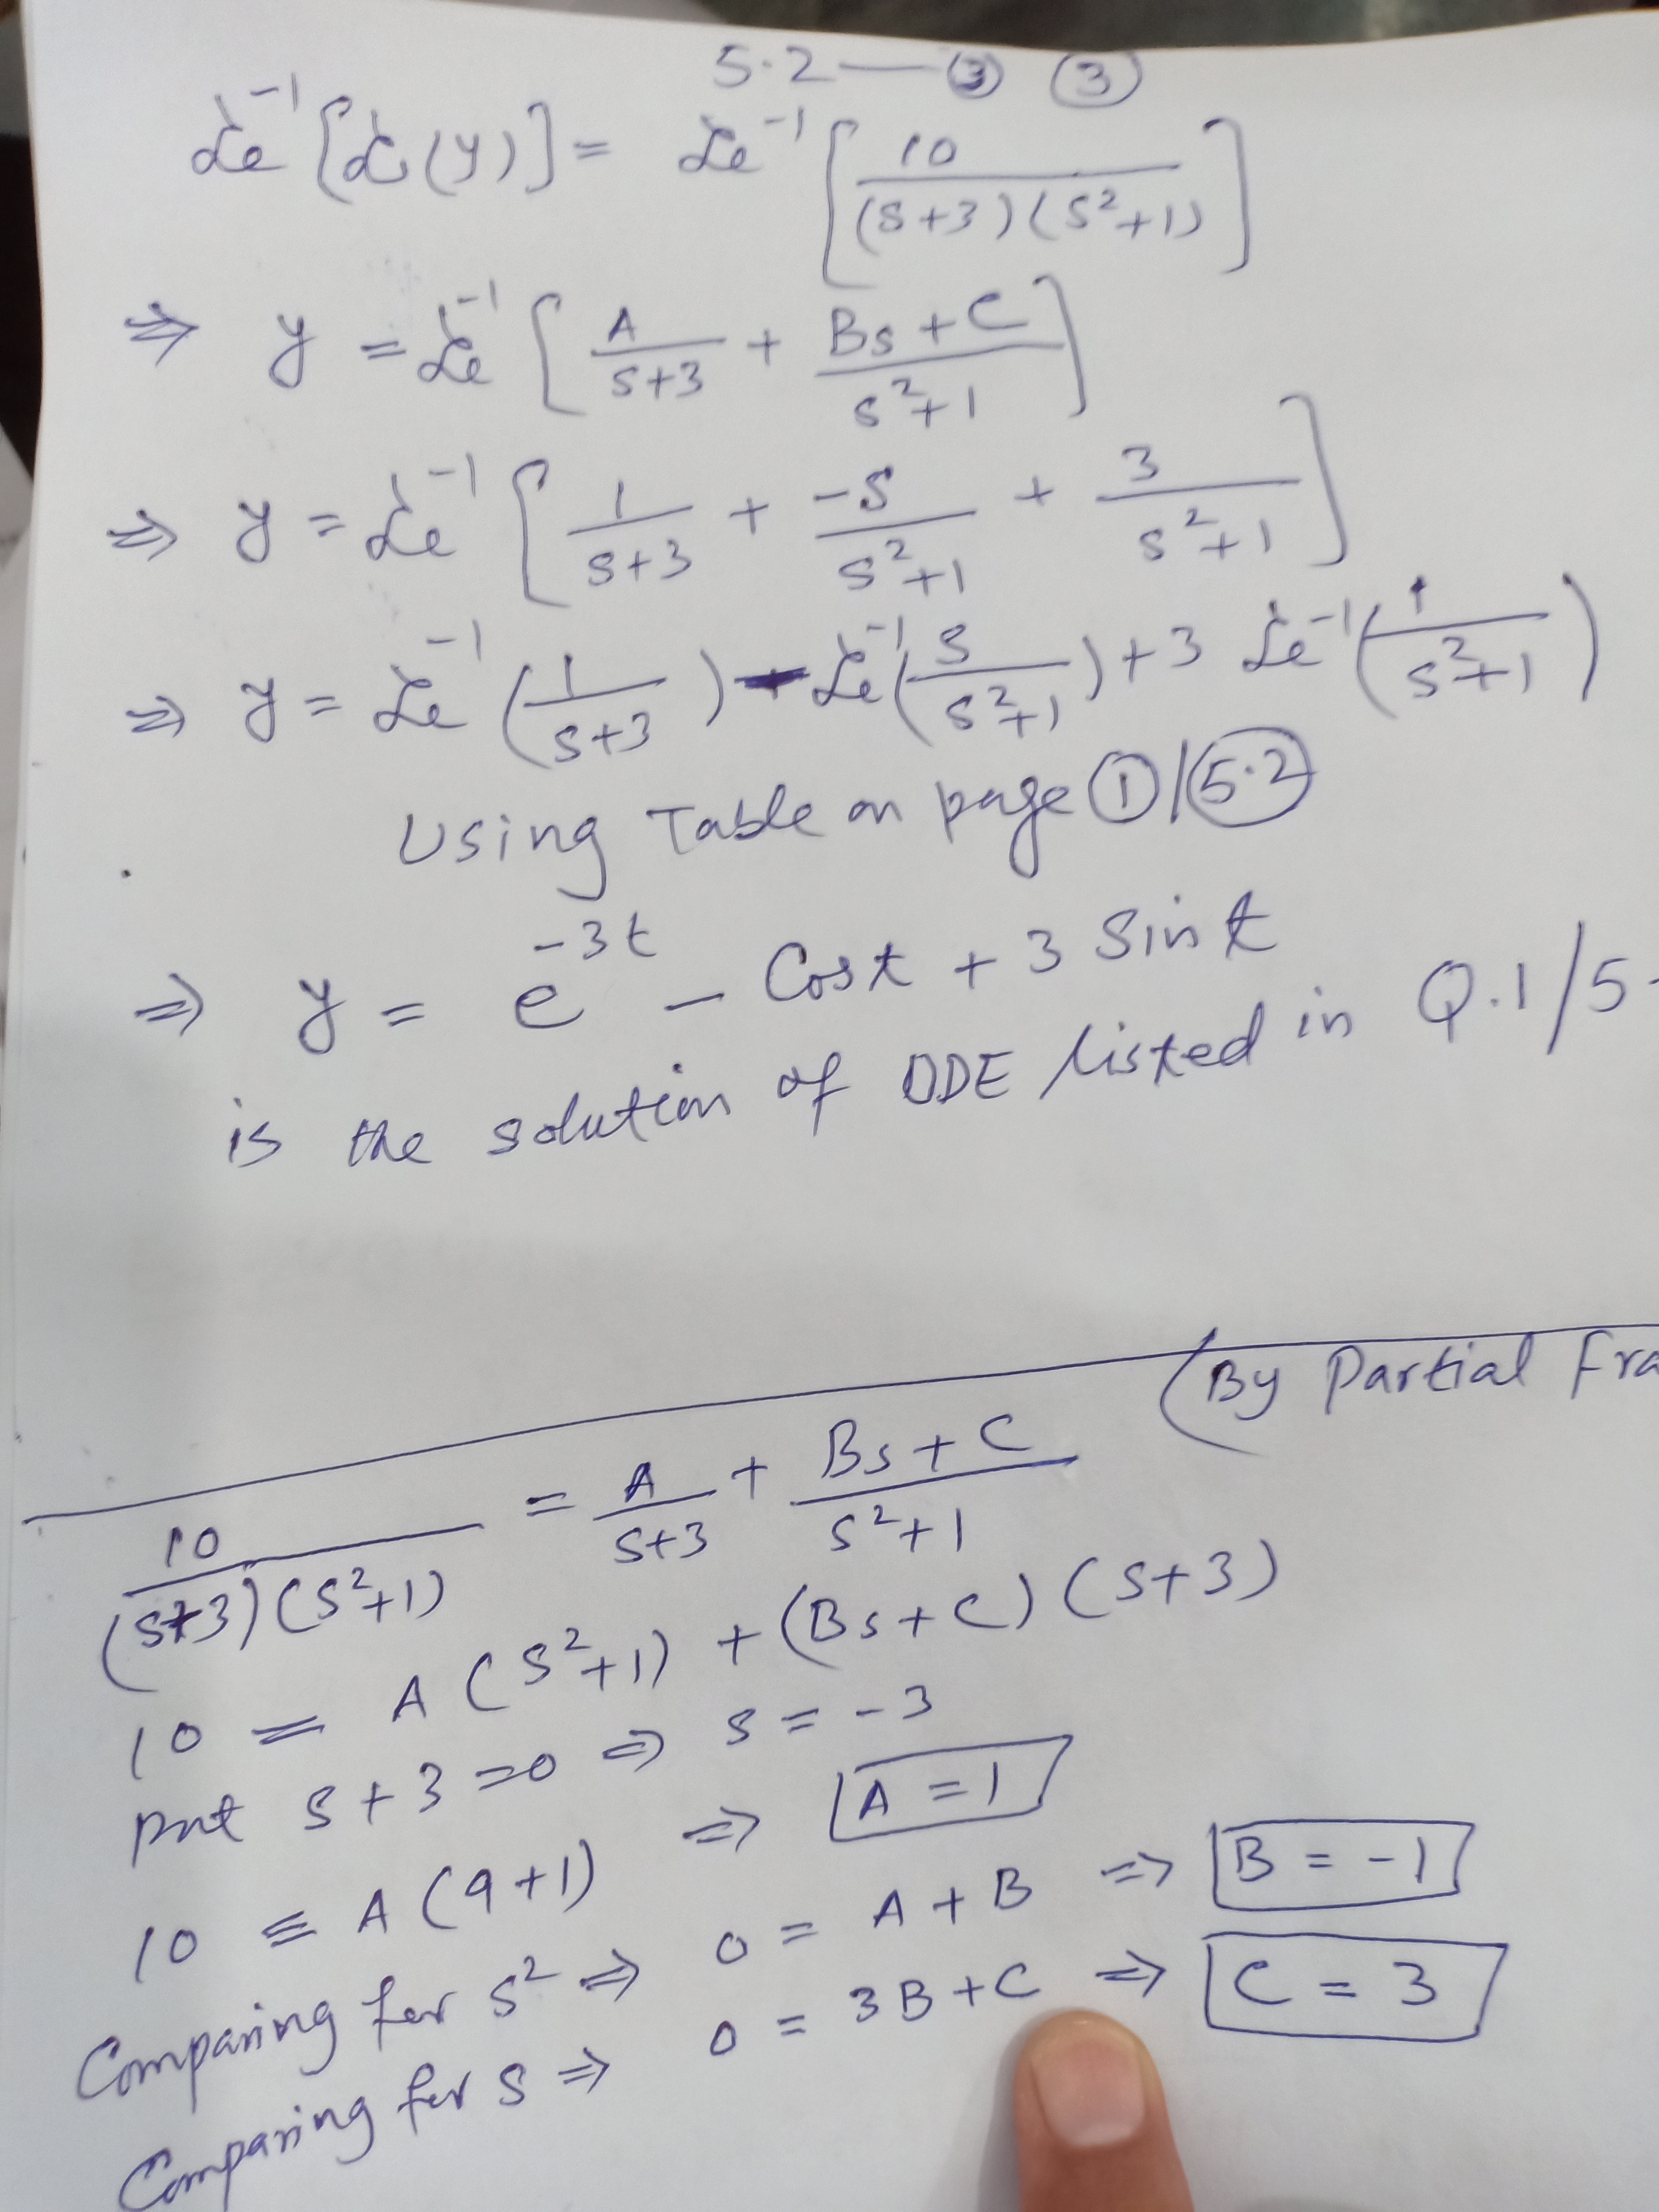 5.2 — ③ ③
ℒe⁻¹[ℒ(y)] = ℒe⁻¹[10/((s+3)(s²+1))]
⇒ y = ℒe⁻¹[A/(s+3) + (Bs+C)/(s²+1)]
⇒ y = ℒe⁻¹[1/(s+3) + -s/(s²+1) + 3/(s²+1)]
⇒ y = ℒe⁻¹(1/(s+3)) - ℒe⁻¹(s/(s²+1)) + 3 ℒe⁻¹(1/(s²+1))
Using Table on page ①/(5.2)
⇒ y = e^(-3t) - Cost + 3 Sint
is the solution of ODE listed in Q.1/5.
(By Partial Fra
10/((s+3)(s²+1)) = A/(s+3) + (Bs+C)/(s²+1)
10 = A(s²+1) + (Bs+C)(s+3)
put s+3=0 ⇒ s = -3
10 = A(9+1) ⇒ A=1
Comparing for s² ⇒ 0 = A+B ⇒ B = -1
Comparing for s ⇒ 0 = 3B+C ⇒ C = 3